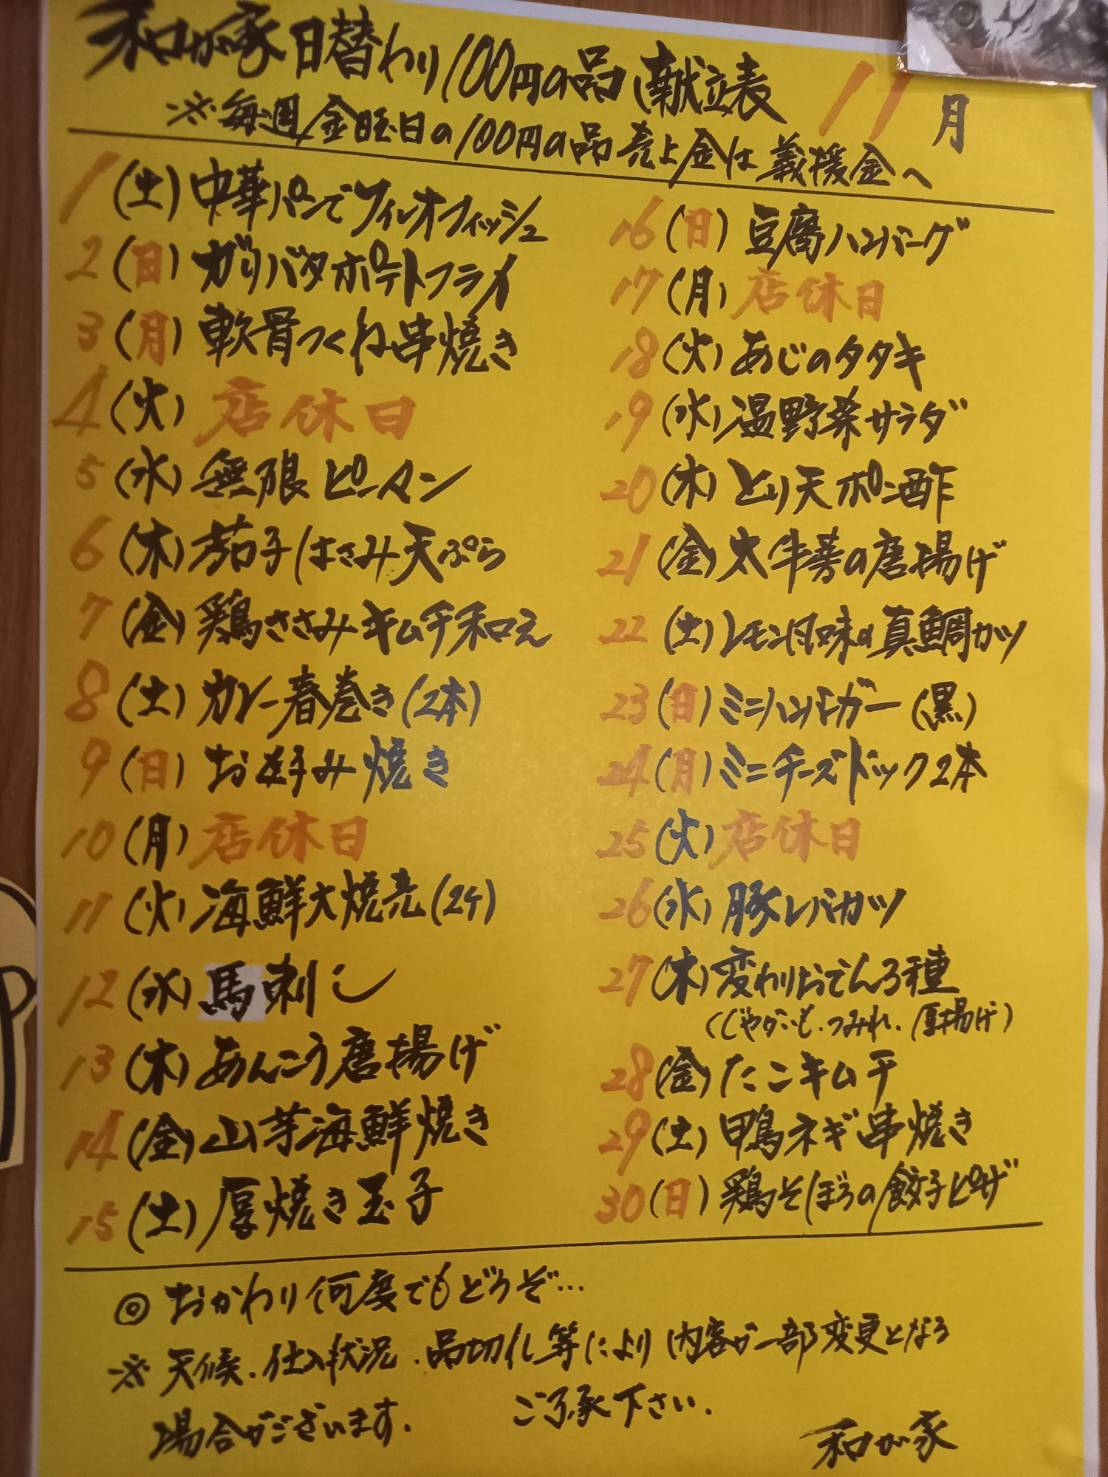 和が家 日替わり100円の品 献立表 11月
※毎週金曜日の100円の品売上金は義援金へ
1(土)中華パンでフィレオフィッシュ
2(日)ガリバタポテトフライ
3(月)軟骨つくね串焼き
4(火)店休日
5(水)無限ピーマン
6(木)茄子はさみ天ぷら
7(金)鶏ささみキムチ和え
8(土)カレー春巻き(2本)
9(日)お好み焼き
10(月)店休日
11(火)海鮮大焼売(2ケ)
12(水)馬刺し
13(木)あんこう唐揚げ
14(金)山芋海鮮焼き
15(土)厚焼き玉子
16(日)豆腐ハンバーグ
17(月)店休日
18(火)あじのタタキ
19(水)温野菜サラダ
20(木)とり天ポン酢
21(金)太牛蒡の唐揚げ
22(土)レモン風味の真鯛カツ
23(日)ミニハンバーガー(黒)
24(月)ミニチーズドック2本
25(火)店休日
26(水)豚レバカツ
27(木)変わりおでん3種
(じゃがいも.つみれ.厚揚げ)
28(金)たこキムチ
29(土)鴨ネギ串焼き
30(日)鶏そぼろの餃子ピザ
◎おかわり何度でもどうぞ…
※天候.仕入状況.品切れ等により内容が一部変更となる
場合がございます. ご了承下さい.
和が家